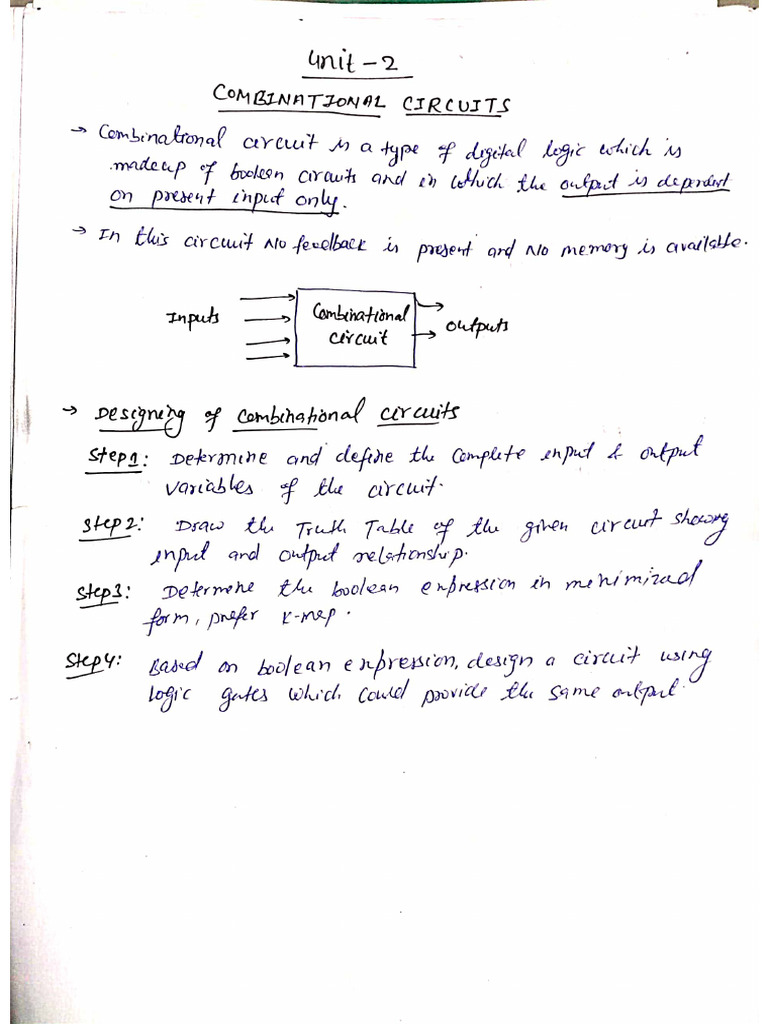 Unit-2
COMBINATIONAL CIRCUITS
→ Combinational circuit is a type of digital logic which is
madeup of boolean circuits and in which the output is dependent
on present input only.
→ In this circuit No feedback is present and No memory is available.
Inputs
Combinational
circuit
Outputs
→ Designing of combinational circuits
Step1: Determine and define the complete input & output
variables of the circuit.
Step2: Draw the Truth Table of the given circuit showing
input and output relationship.
Step3: Determine the boolean expression in minimized
form, prefer K-map.
Step4: Based on boolean expression, design a circuit using
logic gates which could provide the same output.